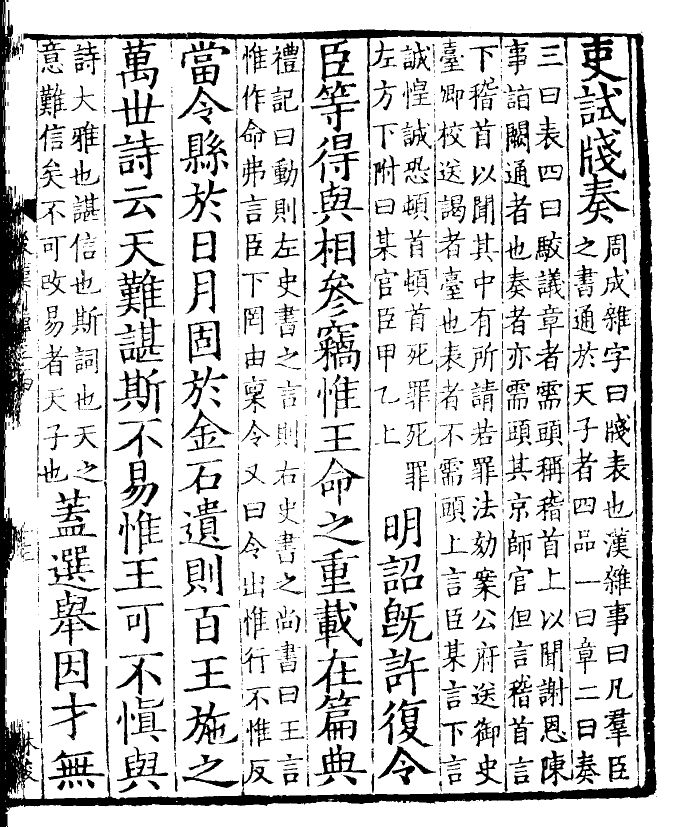 吏試牋奏
周成雜字曰牋表也漢雜事曰凡羣臣
之書通於天子者四品一曰章二曰奏
三曰表四曰駮議章者需頭稱稽首上以聞謝恩陳
事詣闕通者也奏者亦需頭其京師官但言稽首言
下稽首以聞其中有所請若罪法劾案公府送御史
臺卿校送謁者臺也表者不需頭上言臣某言下言
誠惶誠恐頓首頓首死罪死罪
左方下附曰某官臣甲乙上
明詔旣許復令
臣等得與相參竊惟王命之重載在篇典
禮記曰動則左史書之言則右史書之尚書曰王言
惟作命弗言臣下罔由稟令又曰令出惟行不惟反
當令縣於日月固於金石遺則百王施之
萬世詩云天難諶斯不易惟王可不愼與
詩大雅也諶信也斯詞也天之
意難信矣不可改易者天子也
蓋選舉因才無